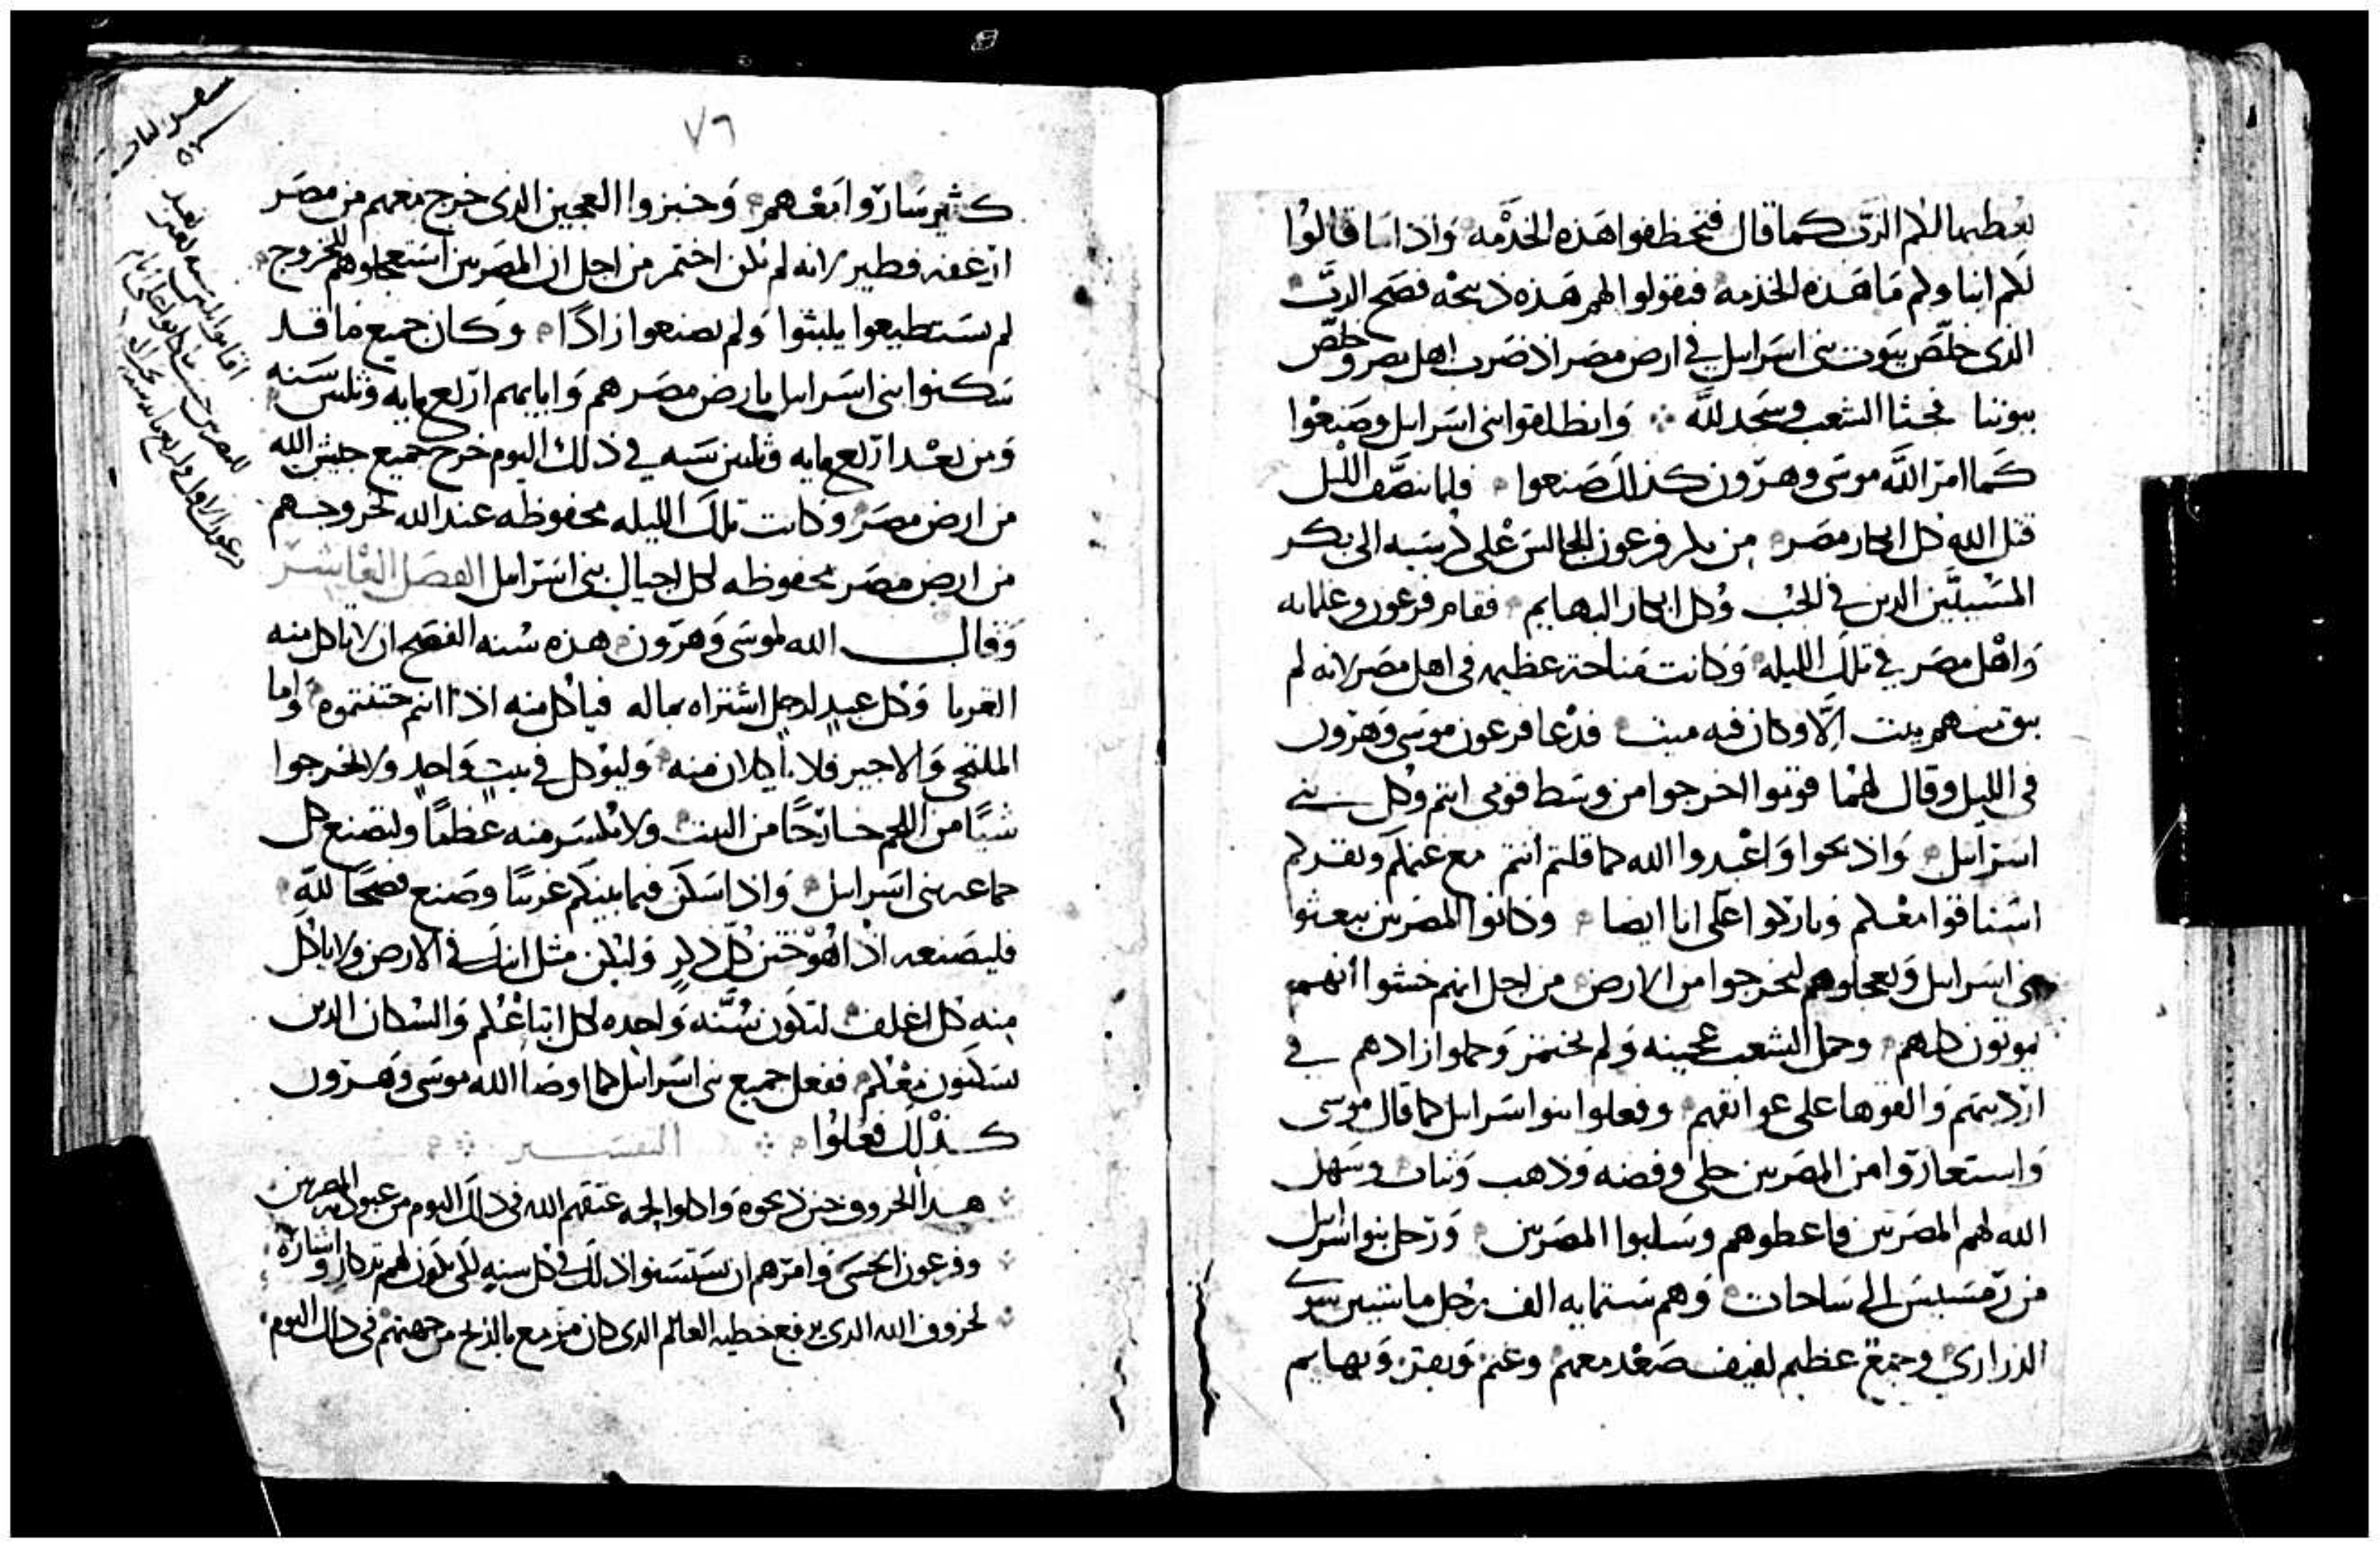 يعطيها لكم الرب كما قال فتحظفوا هذه الخدمه واذا ما قالوا
لكم ابناوكم ما هذه الخدمه فتقولوا لهم هذه ذبيحه فصح الرب
الذى خلص بيوت بنى اسراىيل في ارض مصر اذ ضرب اهل مصر وخلص
بيوتنا فجثا الشعب وسجد لله وانطلقوا بنى اسراىيل وصنعوا
كما امر الله موسى وهرون كذلك صنعوا فلما نتصف الليل
قتل الله كل ابكار مصر من بكر فرعون الجالس على كرسيه الى بكر
المسبيين الدين في الجب وكل ابكار البهايم فقام فرعون وغلمانه
واهل مصر في تلك الليله وكانت مناحة عظيمه فى اهل مصر لانه لم
يبق منهم بيت الا وكان فيه ميت فدعا فرعون موسى وهرون
فى الليل وقال لهما قوموا اخرجوا من وسط قومى انتم وكل بني
اسراىيل واذبحوا واعبدوا الله كما قلتم انتم مع غنمكم وبقركم
استاقوا معكم وباركوا على انا ايضا وكانوا المصريين يبعثوا
بنى اسراىيل ويعجلوهم ليخرجوا من الارض من اجل انهم خشوا انهم
يموتون كلهم وحمل الشعب عجينه ولم يختمر وحملوا ازادهم في
ارديتهم والقوها على عواتقهم وفعلوا بنوا اسراىيل كما قال موسى
واستعاروا من المصريين حلى وفضه وذهب وثياب وسهل
الله لهم المصريين فاعطوهم وسلبوا المصريين ورحل بنوا اسراىيل
من رمسيس الى ساحات وهم ستمايه الف رجل ماشيين سوى
الذراري وجمع عظيم لفيف صعد معهم وغنم وبقر وبهايم
٧٦
كثير ساروا معهم وخبزوا العجين الذى خرج معهم من مصر
ارغفه فطير لانه لم يكن اختمر من اجل ان المصريين استعجلوهم للخروج
لم يستطيعوا يلبثوا ولم يصنعوا زادا وكان جميع ما قد
سكنوا بنى اسراىيل بارض مصر هم وابايهم اربع مايه وثلثين سنه
ومن بعد اربع مايه وثلثين سنه في ذلك اليوم خرج جميع جيش الله
من ارض مصر وكانت تلك الليله محفوظه عند الله لخروجهم
من ارض مصر محفوظه لكل اجيال بنى اسراىيل الفصل العاشر
وقال الله لموسى وهرون هذه سنه الفصح ان لا ياكل منه
الغربا وكل عبد لرجل اشتراه بماله فياكل منه اذا انتم ختنتموه واما
الملتجى والاجير فلا ياكلان منه وليوكل في بيت واحد ولا تخرجوا
شيا من اللحم خارجا من البيت ولا يكسر منه عظما وليصنع كل
جماعه بنى اسراىيل واذا سكن فيما بينكم غريبا وصنع فصحا لله
فليصنعه اذا هو ختن كل ذكر وليكن مثل اناس في الارض ولا ياكل
منه كل اغلف لتكون سنه واحده لكل اتباعكم والسكان الدين
يسكنون معكم ففعل جميع بنى اسراىيل كما اوصا الله موسى وهرون
كذلك فعلوا التفسير
هدا الخروف حين ذبحوه واكلوا لحمه عتقهم الله فى ذلك اليوم من عبوديه المصريين
وفرعون وامرهم ان يستسنوا ذلك في كل سنه لكى يكون لهم تدكار واشاره
لخروف الله الدى يرفع خطيه العالم الدى كان مزمع بالذبح من جهتهم فى ذلك اليوم